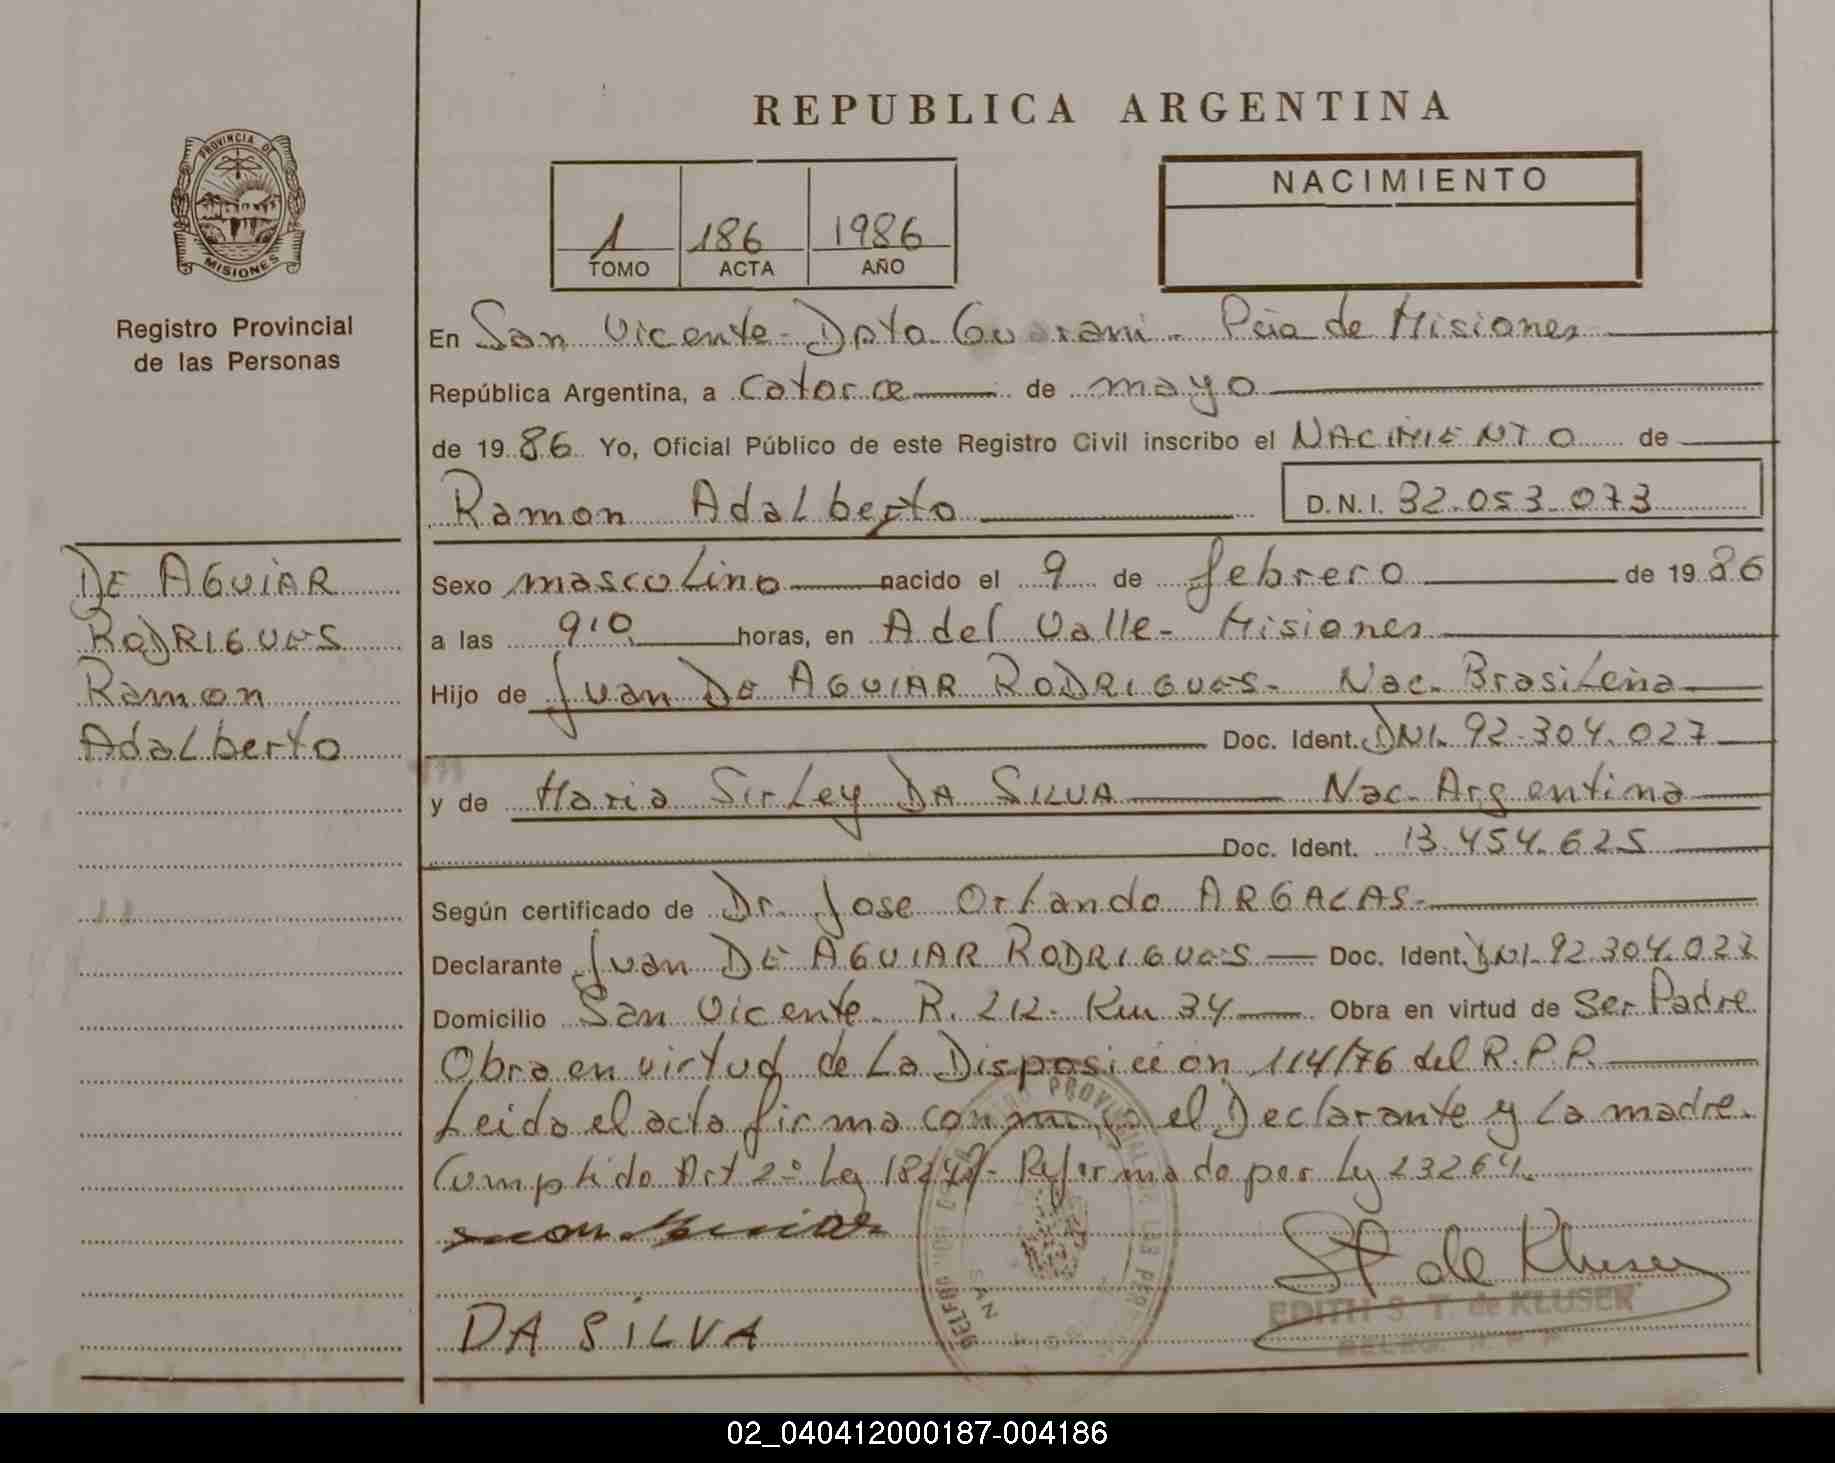 REPUBLICA ARGENTINA
PROVINCIA DE
MISIONES
Registro Provincial
de las Personas
1 186 1986
TOMO ACTA AÑO
NACIMIENTO
En San Vicente - Dpto Guarani - Pcia de Misiones
República Argentina, a Catorce de mayo
de 19 86 Yo, Oficial Público de este Registro Civil inscribo el NACIMIENTO de
Ramon Adalberto D.N.I. 32.053.073
DE AGUIAR
RODRIGUES
Ramon
Adalberto
Sexo mascolino nacido el 9 de febrero de 19 86
a las 9,10 horas, en A del Valle - Misiones
Hijo de Juan DE AGUIAR RODRIGUES - Nac. Brasileña
Doc. Ident. DNI. 92.304.027
y de Maria Sirley DA SILVA Nac. Argentina
Doc. Ident. 13.454.625
Según certificado de Dr. Jose Orlando ARGALAS -
Declarante Juan DE AGUIAR RODRIGUES Doc. Ident. DNI. 92.304.027
Domicilio San Vicente. R. 212. Km 34 Obra en virtud de Ser Padre
Obra en virtud de La Disposicion 114/76 del R.P.P.
Leida el acta firma conmigo el Declarante y La madre.
Cumplido Art 2º Ley 18248 - Reformado por Ley 23264.
St de Kluser
EDITH S. T. de KLUSER
DA SILVA
02_040412000187-004186